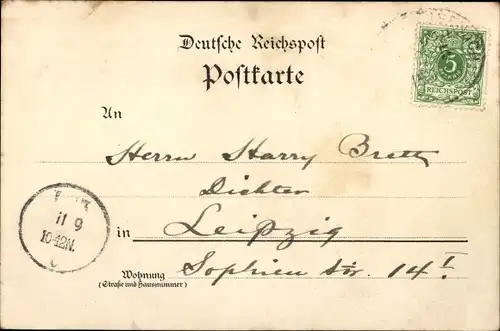 Deutsche Reichspost
Postkarte
5
REICHSPOST
An
Herrn Harry Brett
Dichter
in Leipzig
11 9
10-12N.
Wohnung Sophien Str. 14 I
(Straße und Hausnummer)